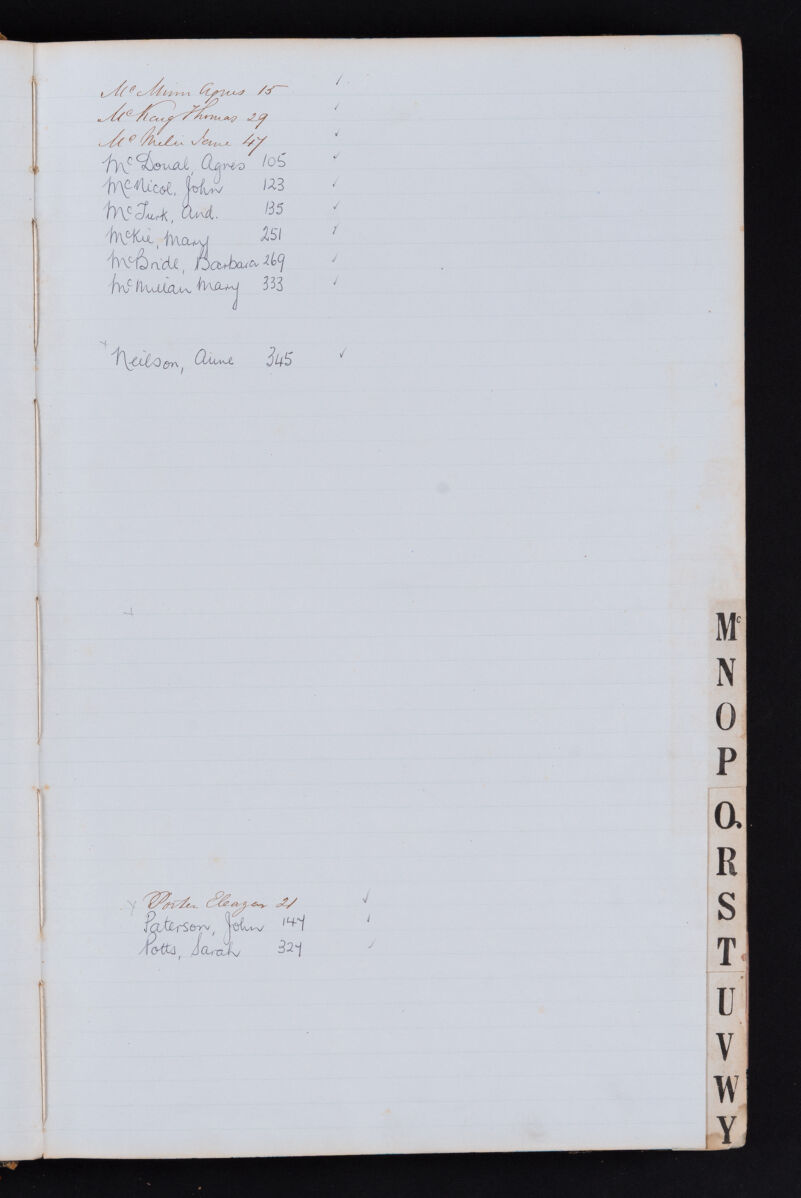 McMinn Agnes 15
McKaig Thomas 29
Mc Jane 47
McDoual, Agnes 105
McNicol, John 123
McTurk, And. 135
McKie, Mary 251
McBride, Barbara 269
McMillan Mary 333
Neilson, Anne 345
Porter Eleazar 21
Paterson, John 147
Potts, Sarah 327
Mc
N
O
P
Q
R
S
T
U
V
W
Y